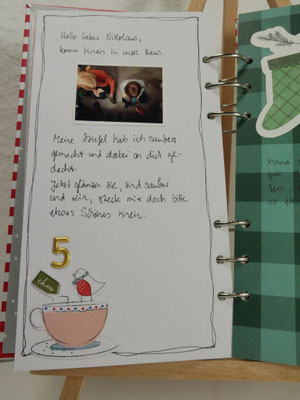 Hallo lieber Nikolaus,
komm herein in unser Haus.
Meine Stiefel hab ich sauber
gemacht und dabei an dich ge-
dacht.
Jetzt glänzen sie, sind sauber
und rein, steck mir doch bitte
etwas Schönes hinein.
5
Mama